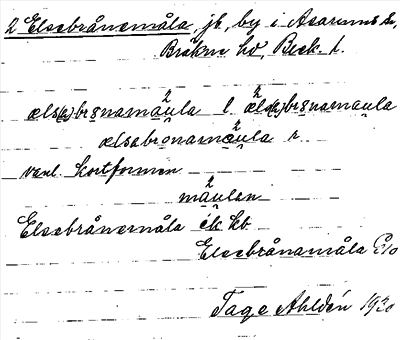 2 Elsebrånemåla, jb, by i Asarums sn,
Bräkne hd, Blek. l.
æls(ə)brånamåula l. æls(ə)brånamåula
ælsabrånamåula r
vanl. kortformen
måulan
Elsebrånemåla ek kb
Elsebrånamåla Elo
Tage Ahldén 1930